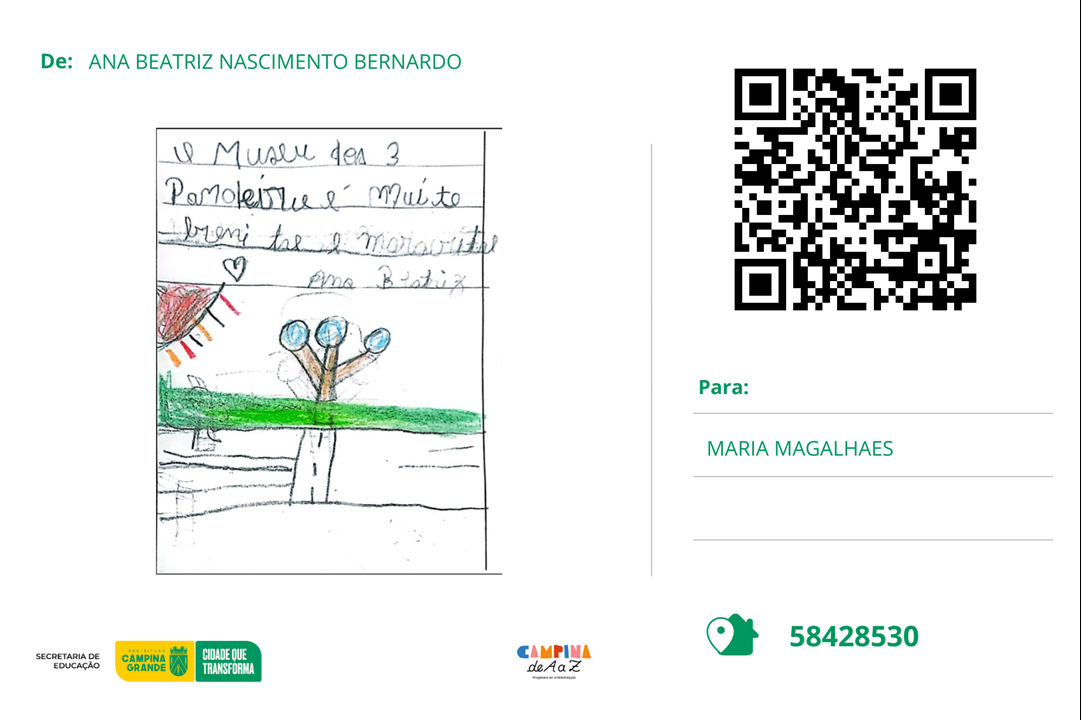 De: ANA BEATRIZ NASCIMENTO BERNARDO
O Museu dos 3
Pandeiru é Muito
e
Ana Beatriz
Para:
MARIA MAGALHAES
58428530
SECRETARIA DE
EDUCAÇÃO
PREFEITURA
CAMPINA
GRANDE
CIDADE QUE
TRANSFORMA
CAMPINA
de A a Z
Programa de Alfabetização